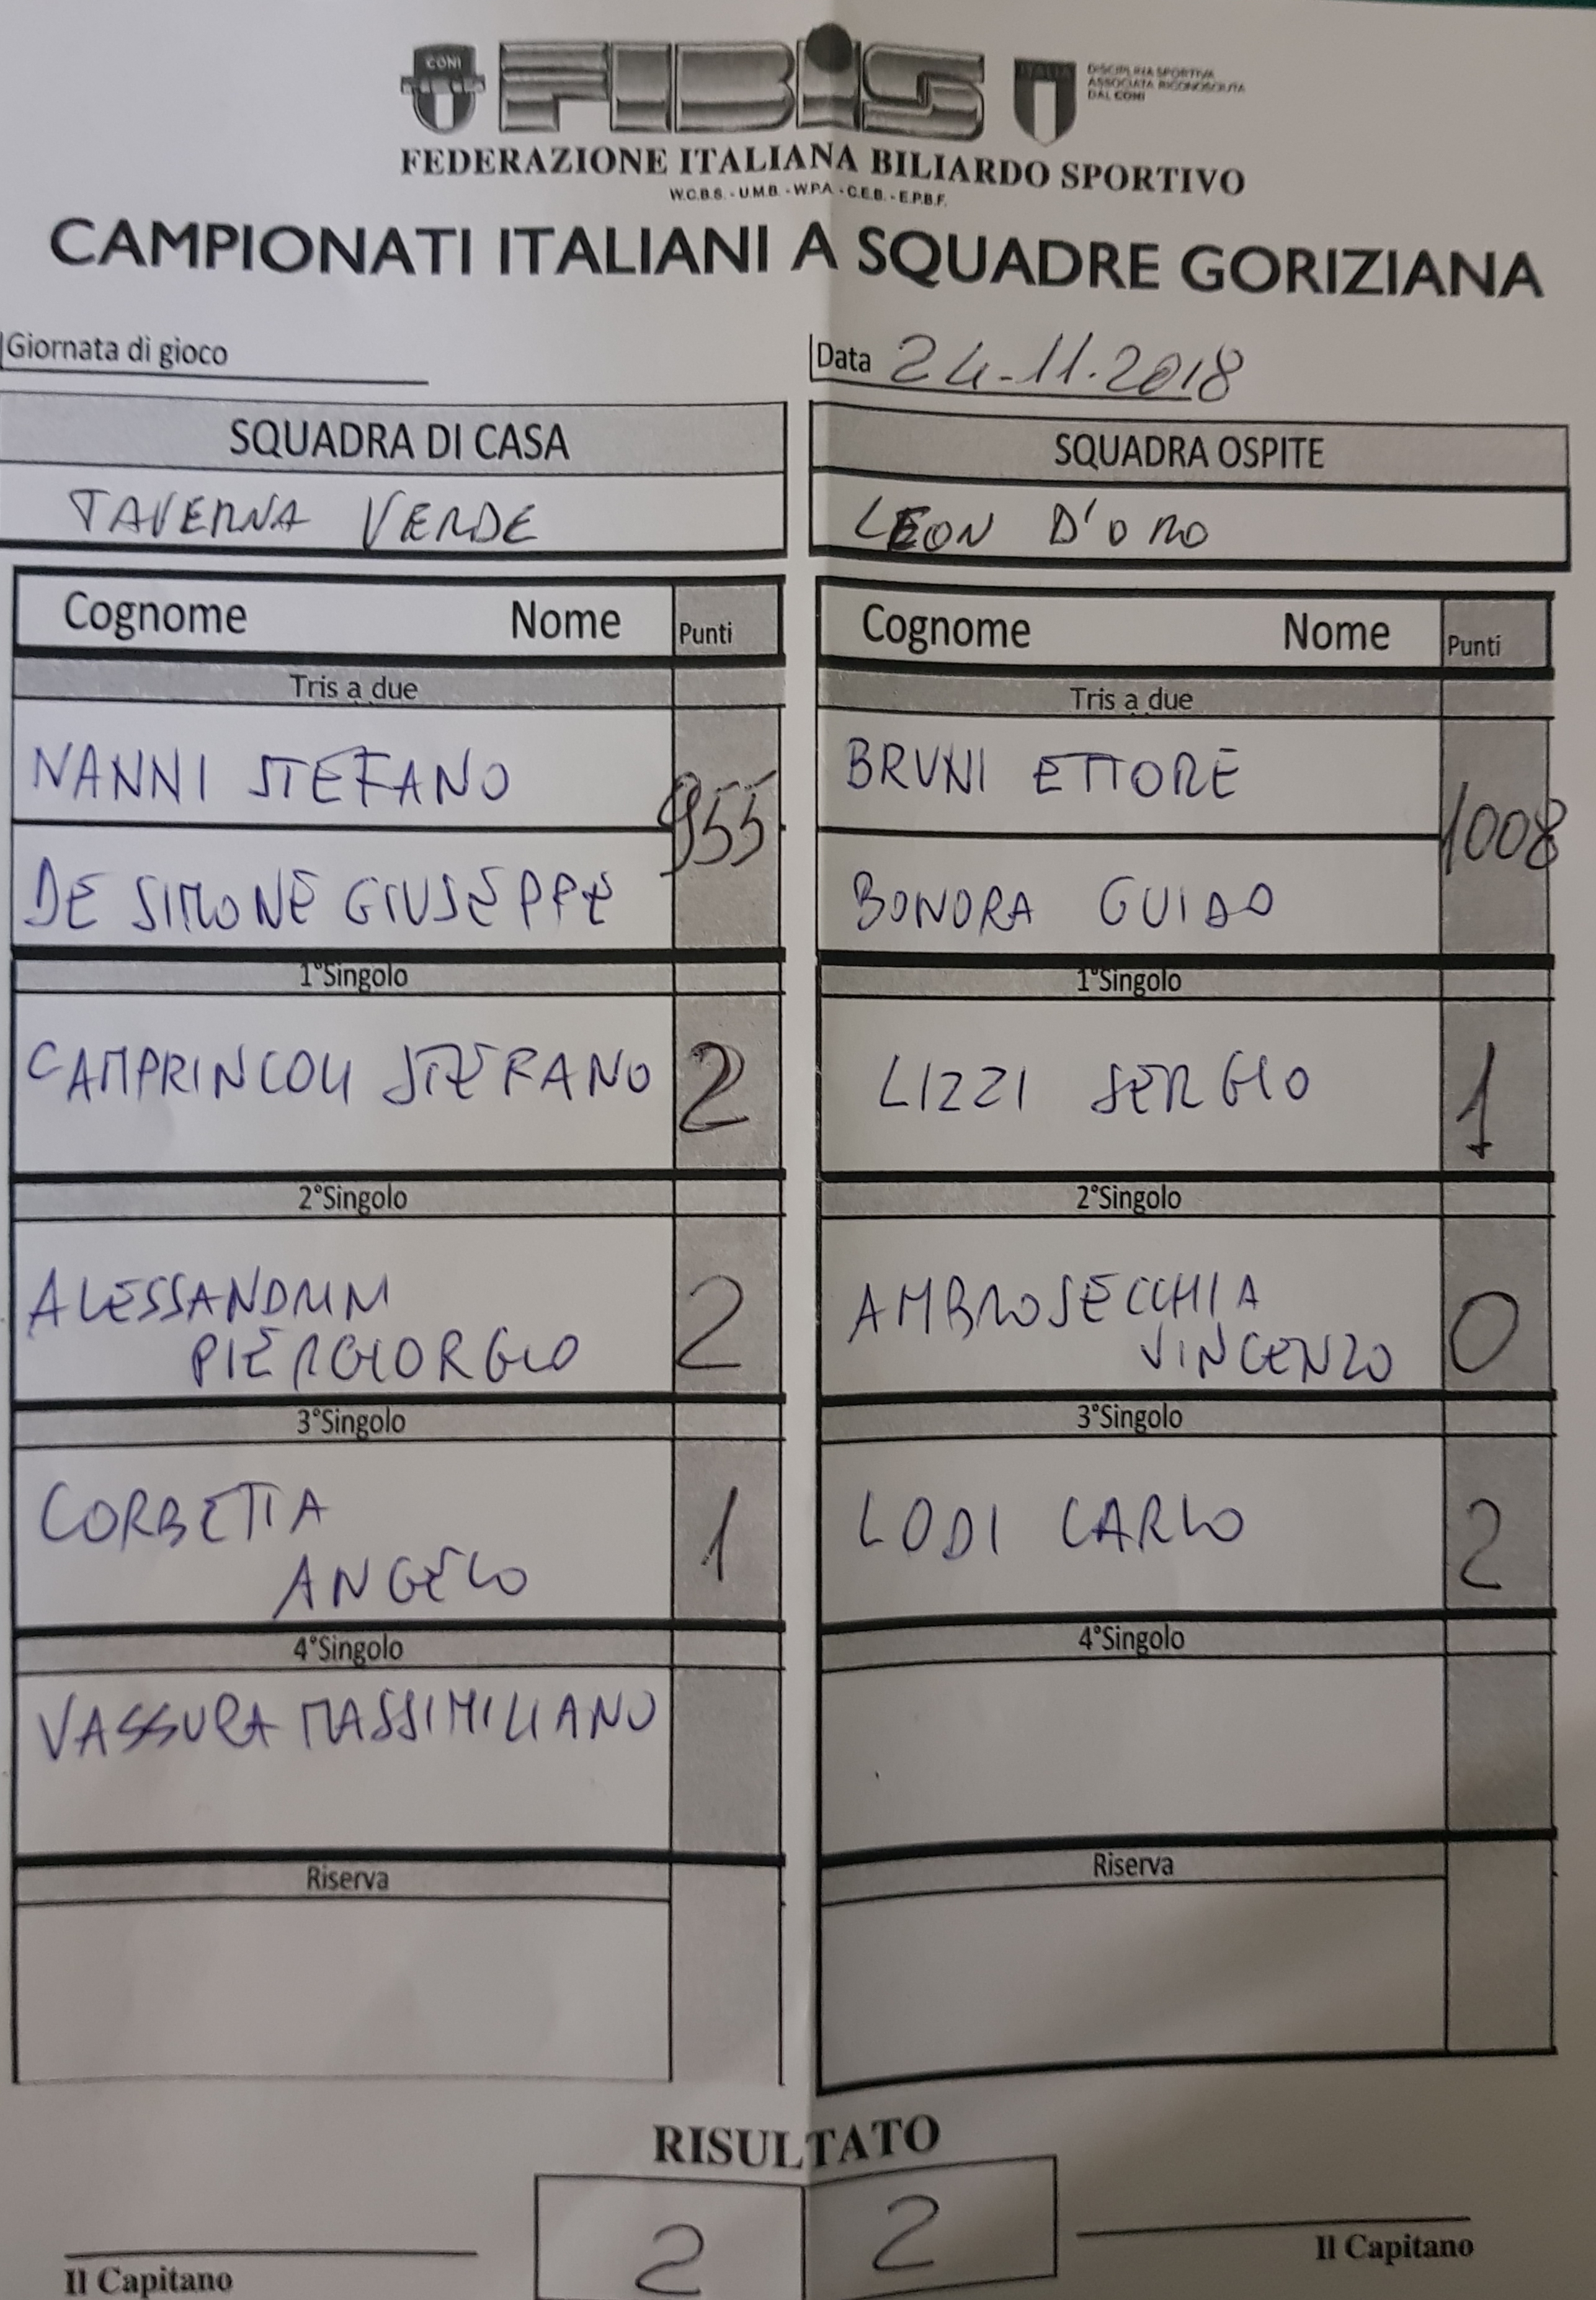 CONI FIBiS ITALIA DISCIPLINA SPORTIVA
ASSOCIATA RICONOSCIUTA
DAL CONI
FEDERAZIONE ITALIANA BILIARDO SPORTIVO
W.C.B.S. - U.M.B. - W.P.A. - C.E.B. - E.P.B.F.
CAMPIONATI ITALIANI A SQUADRE GORIZIANA
Giornata di gioco Data 24-11.2018
SQUADRA DI CASA SQUADRA OSPITE
TAVERNA VERDE LEON D'ORO
Cognome Nome Punti Cognome Nome Punti
Tris a due Tris a due
NANNI STEFANO BRUNI ETTORE
955 1008
DE SIMONE GIUSEPPE BONORA GUIDO
1°Singolo 1°Singolo
CAMPRINCOLI STEFANO 2 LIZZI SERGIO 1
2°Singolo 2°Singolo
ALESSANDRINI AMBROSECCHIA
PIERGIORGIO 2 VINCENZO 0
3°Singolo 3°Singolo
CORBETTA LODI CARLO 2
ANGELO 1
4°Singolo 4°Singolo
VASSURA MASSIMILIANO
Riserva Riserva
RISULTATO
2 2
Il Capitano Il Capitano